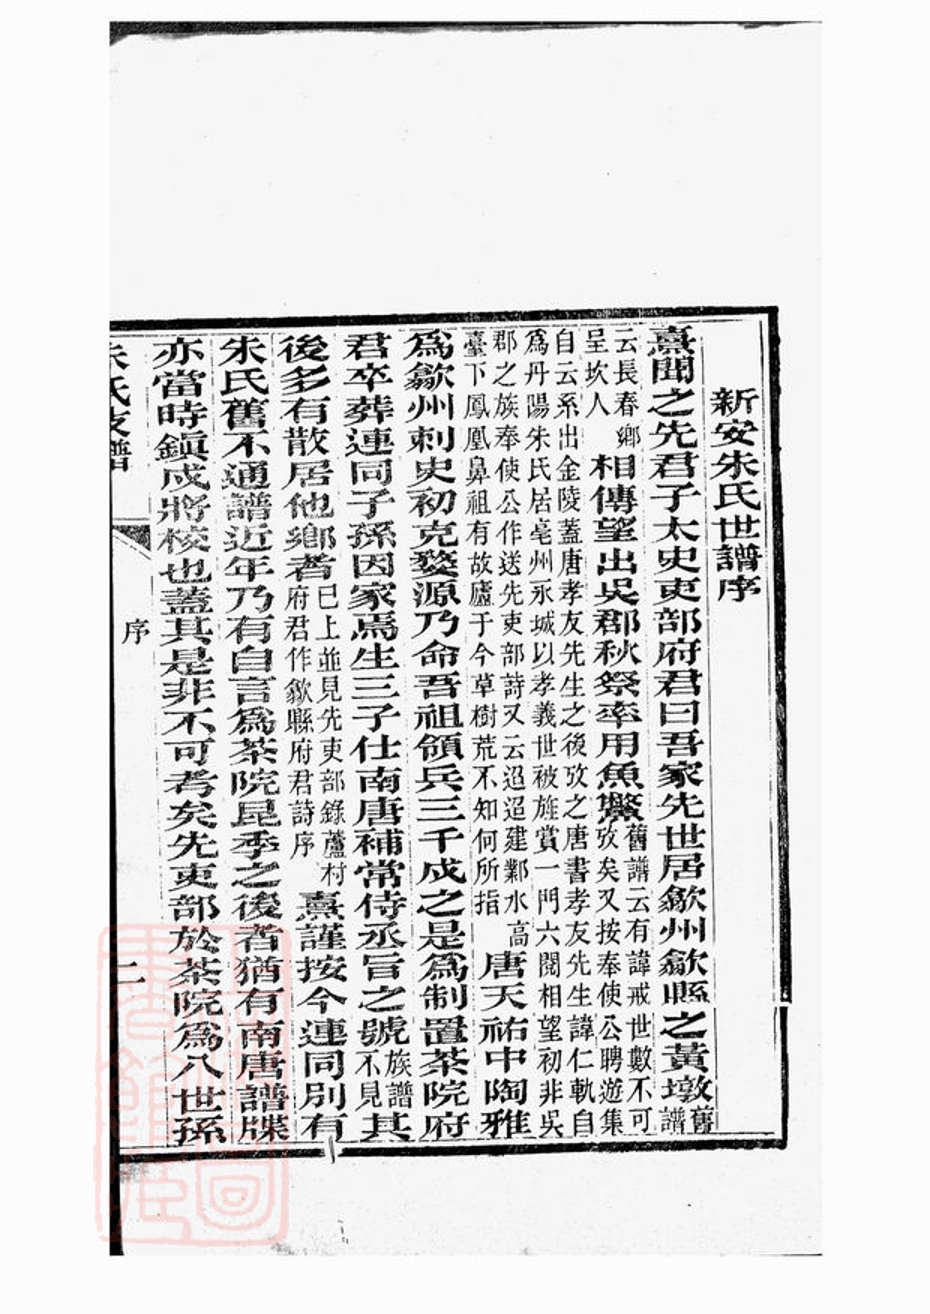 新安朱氏世譜序
熹聞之先君子太史吏部府君曰吾家先世居歙州歙縣之黃墩舊譜
云長春鄉呈坎人相傳望出吳郡秋祭率用魚鱉舊譜云有諱戒世數不可攷矣又按奉使公聘遊集
自云系出金陵蓋唐孝友先生之後攷之唐書孝友先生諱仁軌自
爲丹陽朱氏居亳州永城以孝義世被旌賞一門六闕相望初非吳
郡之族奉使公作送先吏部詩又云迢迢建鄴水高臺下鳳凰鼻祖有故廬于今草樹荒不知何所指唐天祐中陶雅
爲歙州刺史初克婺源乃命吾祖領兵三千戍之是爲制置茶院府
君卒葬連同子孫因家焉生三子仕南唐補常侍丞旨之號族譜不見其
後多有散居他鄉者已上並見先吏部錄蘆村府君作歙縣府君詩序熹謹按今連同別有
朱氏舊不通譜近年乃有自言爲茶院昆季之後者猶有南唐譜牒
亦當時鎭戍將校也蓋其是非不可考矣先吏部於茶院爲八世孫
朱氏支譜
序
二